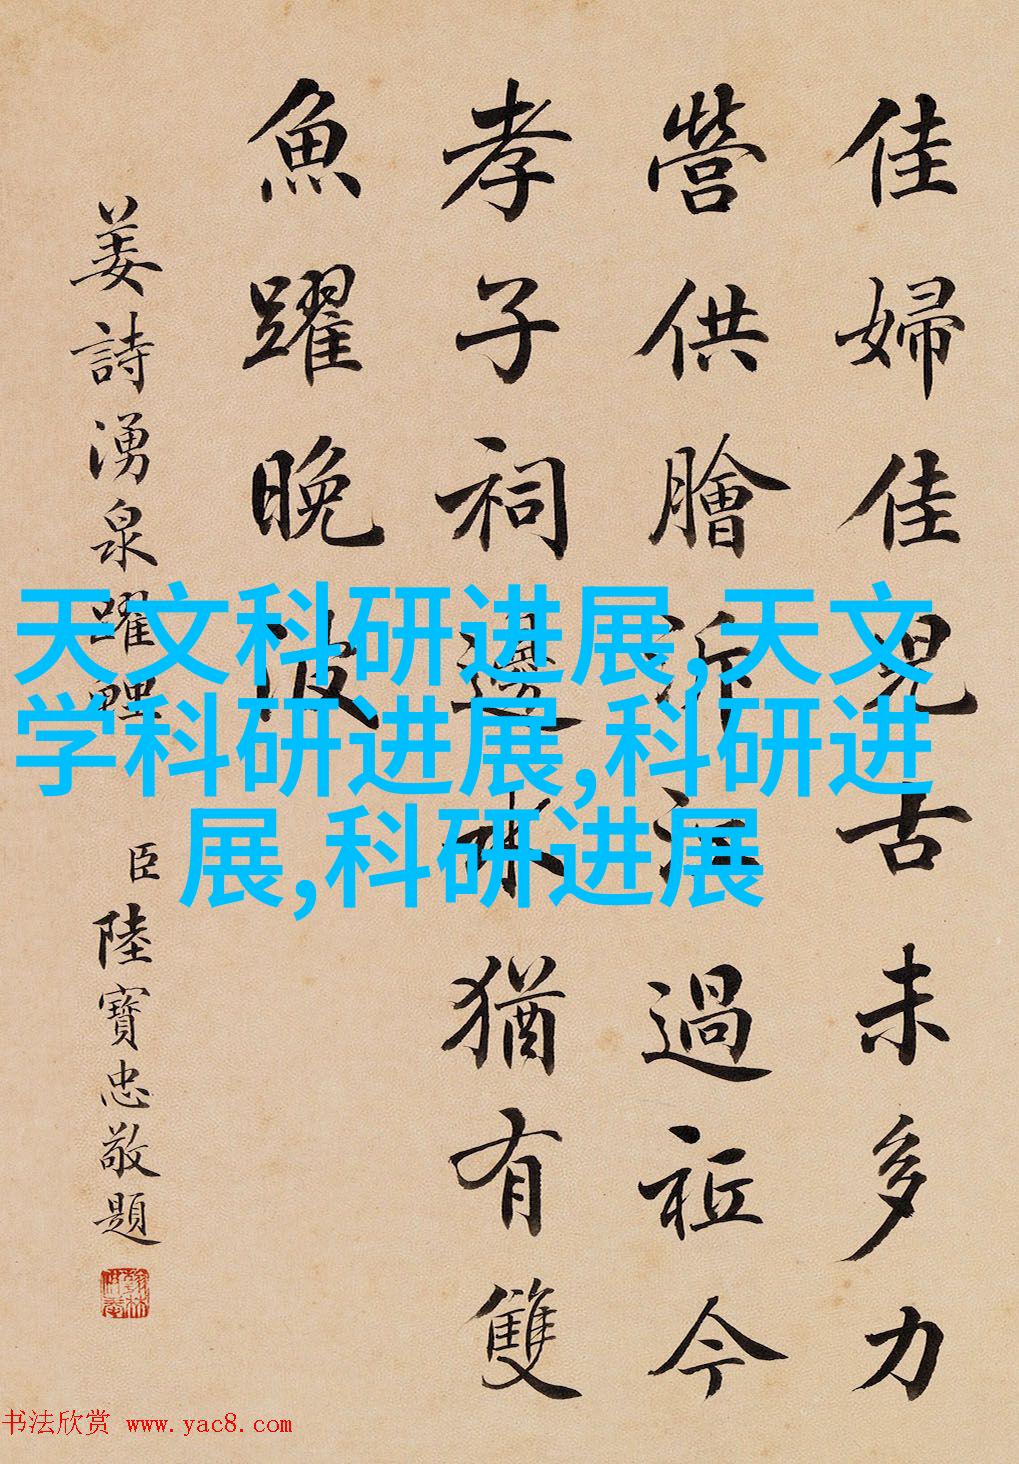 佳婦佳兒古未多力
營供膾泝江過祗今
孝子祠邊水猶有雙
魚躍晚波
姜詩湧泉躍鯉
臣陸寶忠敬題
天文科研进展,天文
学科研进展,科研进
展,科研进展
书法欣赏 www.yac8.com